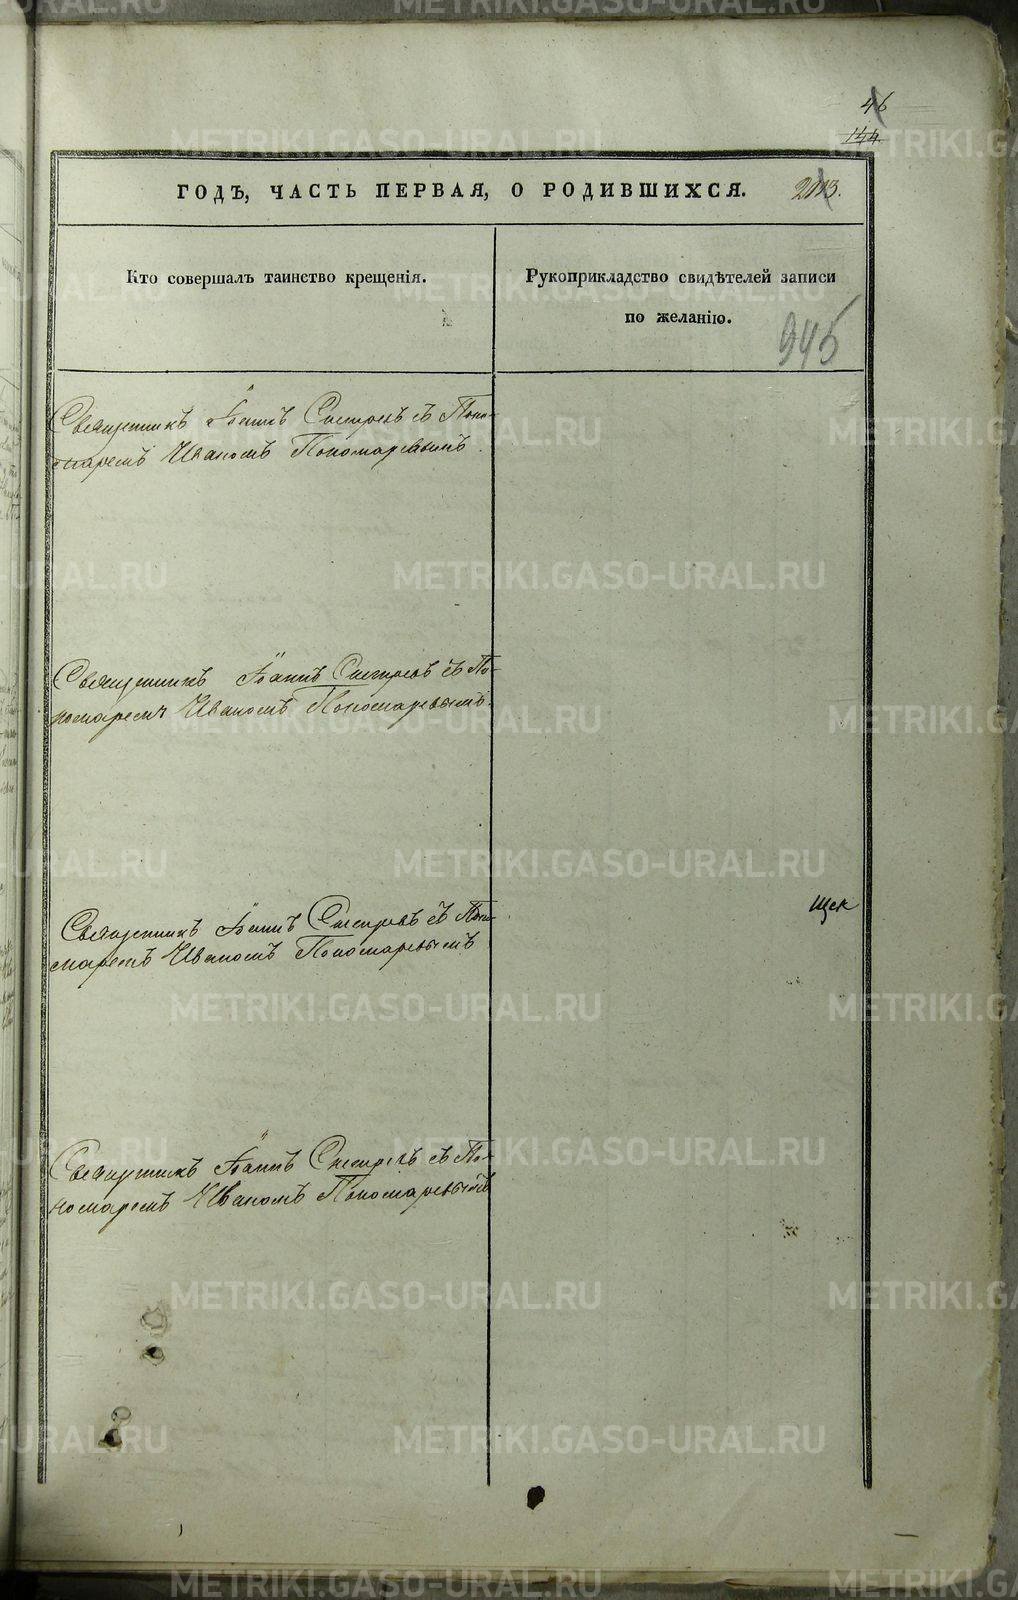 46
144
ГОДЪ, ЧАСТЬ ПЕРВАЯ, О РОДИВШИХСЯ.
Кто совершалъ таинство крещенія.
Рукоприкладство свидѣтелей записи
по желанію.
945
Священникъ Іоаннъ Снегиревъ съ Поно-
маремъ Иваномъ Пономаревымъ.
Священникъ Іоаннъ Снегиревъ съ По-
номаремъ Иваномъ Пономаревымъ.
Священникъ Іоаннъ Снегиревъ съ Поно-
маремъ Иваномъ Пономаревымъ
Священникъ Іоаннъ Снегиревъ съ По-
номаремъ Иваномъ Пономаревымъ
METRIKI.GASO-URAL.RU